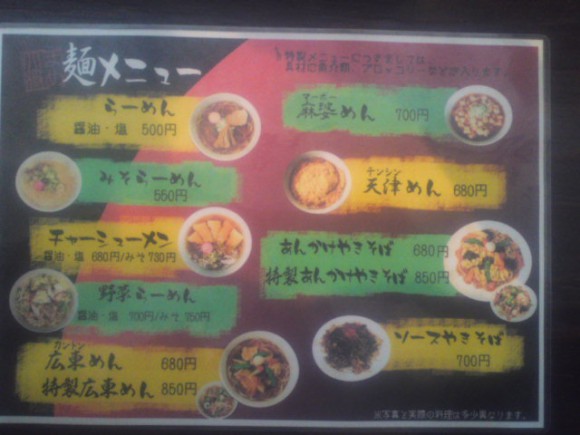 麺メニュー
特製メニューにつきましては
らーめん
醤油・塩 500円
みそらーめん
550円
チャーシューメン
醤油・塩 680円/みそ730円
野菜らーめん
醤油・塩 700円/みそ750円
カントン
広東めん 680円
特製広東めん 850円
マーボー
麻婆めん 700円
テンシン
天津めん 680円
あんかけやきそば 680円
特製あんかけやきそば 850円
ソースやきそば
700円
※写真と実際の料理は多少異なります。